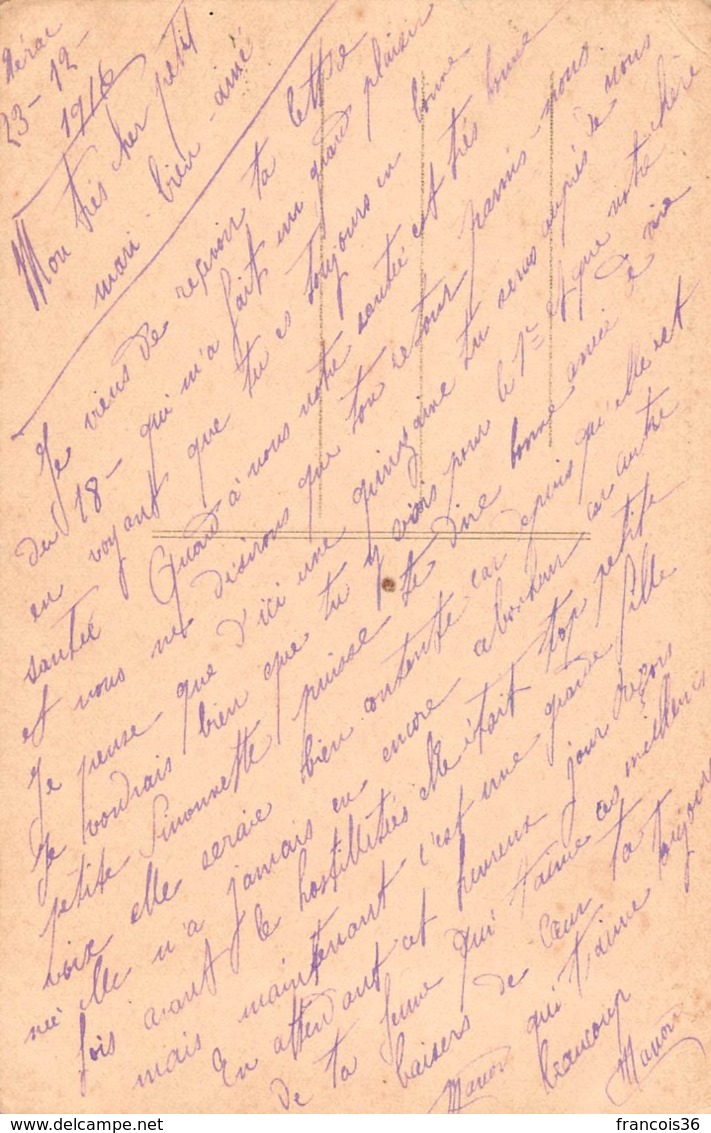 Nérac
23-12-
1916
Mon très cher petit
mari bien-aimé
Je viens de recevoir ta lettre
du 18 - qui m'a fait un grand plaisir
en voyant que tu es toujours en bonne
santée Quand à nous notre santée est très bonne
et nous ne désirons que ton retour parmis nous
Je pense que d'ici une quinzaine tu seras auprès de nous
Je voudrais bien que tu y sois pour le 1er et que notre chère
petite Simonnette puisse te dire bonne année de vive
voix elle seraie bien contente car depuis qu'elle est
née elle n'a jamais eu encore ce bonheur car autre
fois avant le hostillitées elle était trop petite
mais maintenant c'est une grande fille
En attendant cet heureux jour reçois
de ta femme qui t'aime ces meilleurs
baisers de Cœur ta
Manon qui t'aime toujours
beaucoup
Manon
francois36